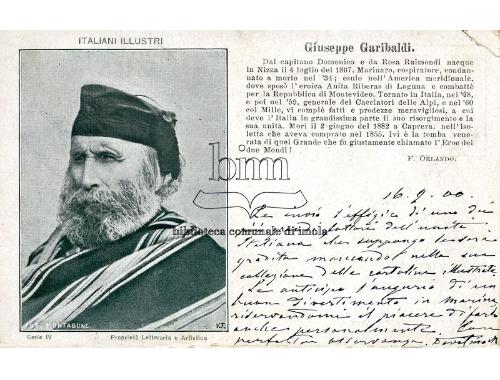 ITALIANI ILLUSTRI
FOT. MONTABONE
V.T.
Serie IV
Proprietà Letteraria e Artistica
Giuseppe Garibaldi.
Dal capitano Domenico e da Rosa Raimondi nacque
in Nizza il 4 luglio del 1807. Marinaro, cospiratore, condan-
nato a morte nel '34; esule nell'America meridionale,
dove sposò l'eroica Anita Riberas di Laguna e combattè
per la Repubblica di Montevideo. Tornato in Italia, nel '48,
e poi nel '59, generale dei Cacciatori delle Alpi, e nel '60
coi Mille, vi compiè fatti e prodezze meravigliosi, a cui
deve l'Italia in grandissima parte il suo risorgimento e la
sua unità. Morì il 2 giugno del 1882 a Caprera, nell'iso-
letta che aveva comprato nel 1855. Ivi è la tomba vene-
rata di quel Grande che fu giustamente chiamato l'Eroe dei
due Mondi!
F. ORLANDO.
bim
biblioteca comunale di imola
16.9.00.
Le invio l'effigie di uno dei
dell'unità
Italiana che suppongo tornerà
gradita mancando nella sua
collezione delle cartoline illustrate
Le anticipo l'augurio di un
buon divertimento in marina
riservandomi il piacere di farlo
anche personalmente. Con
perfetta osservanza.